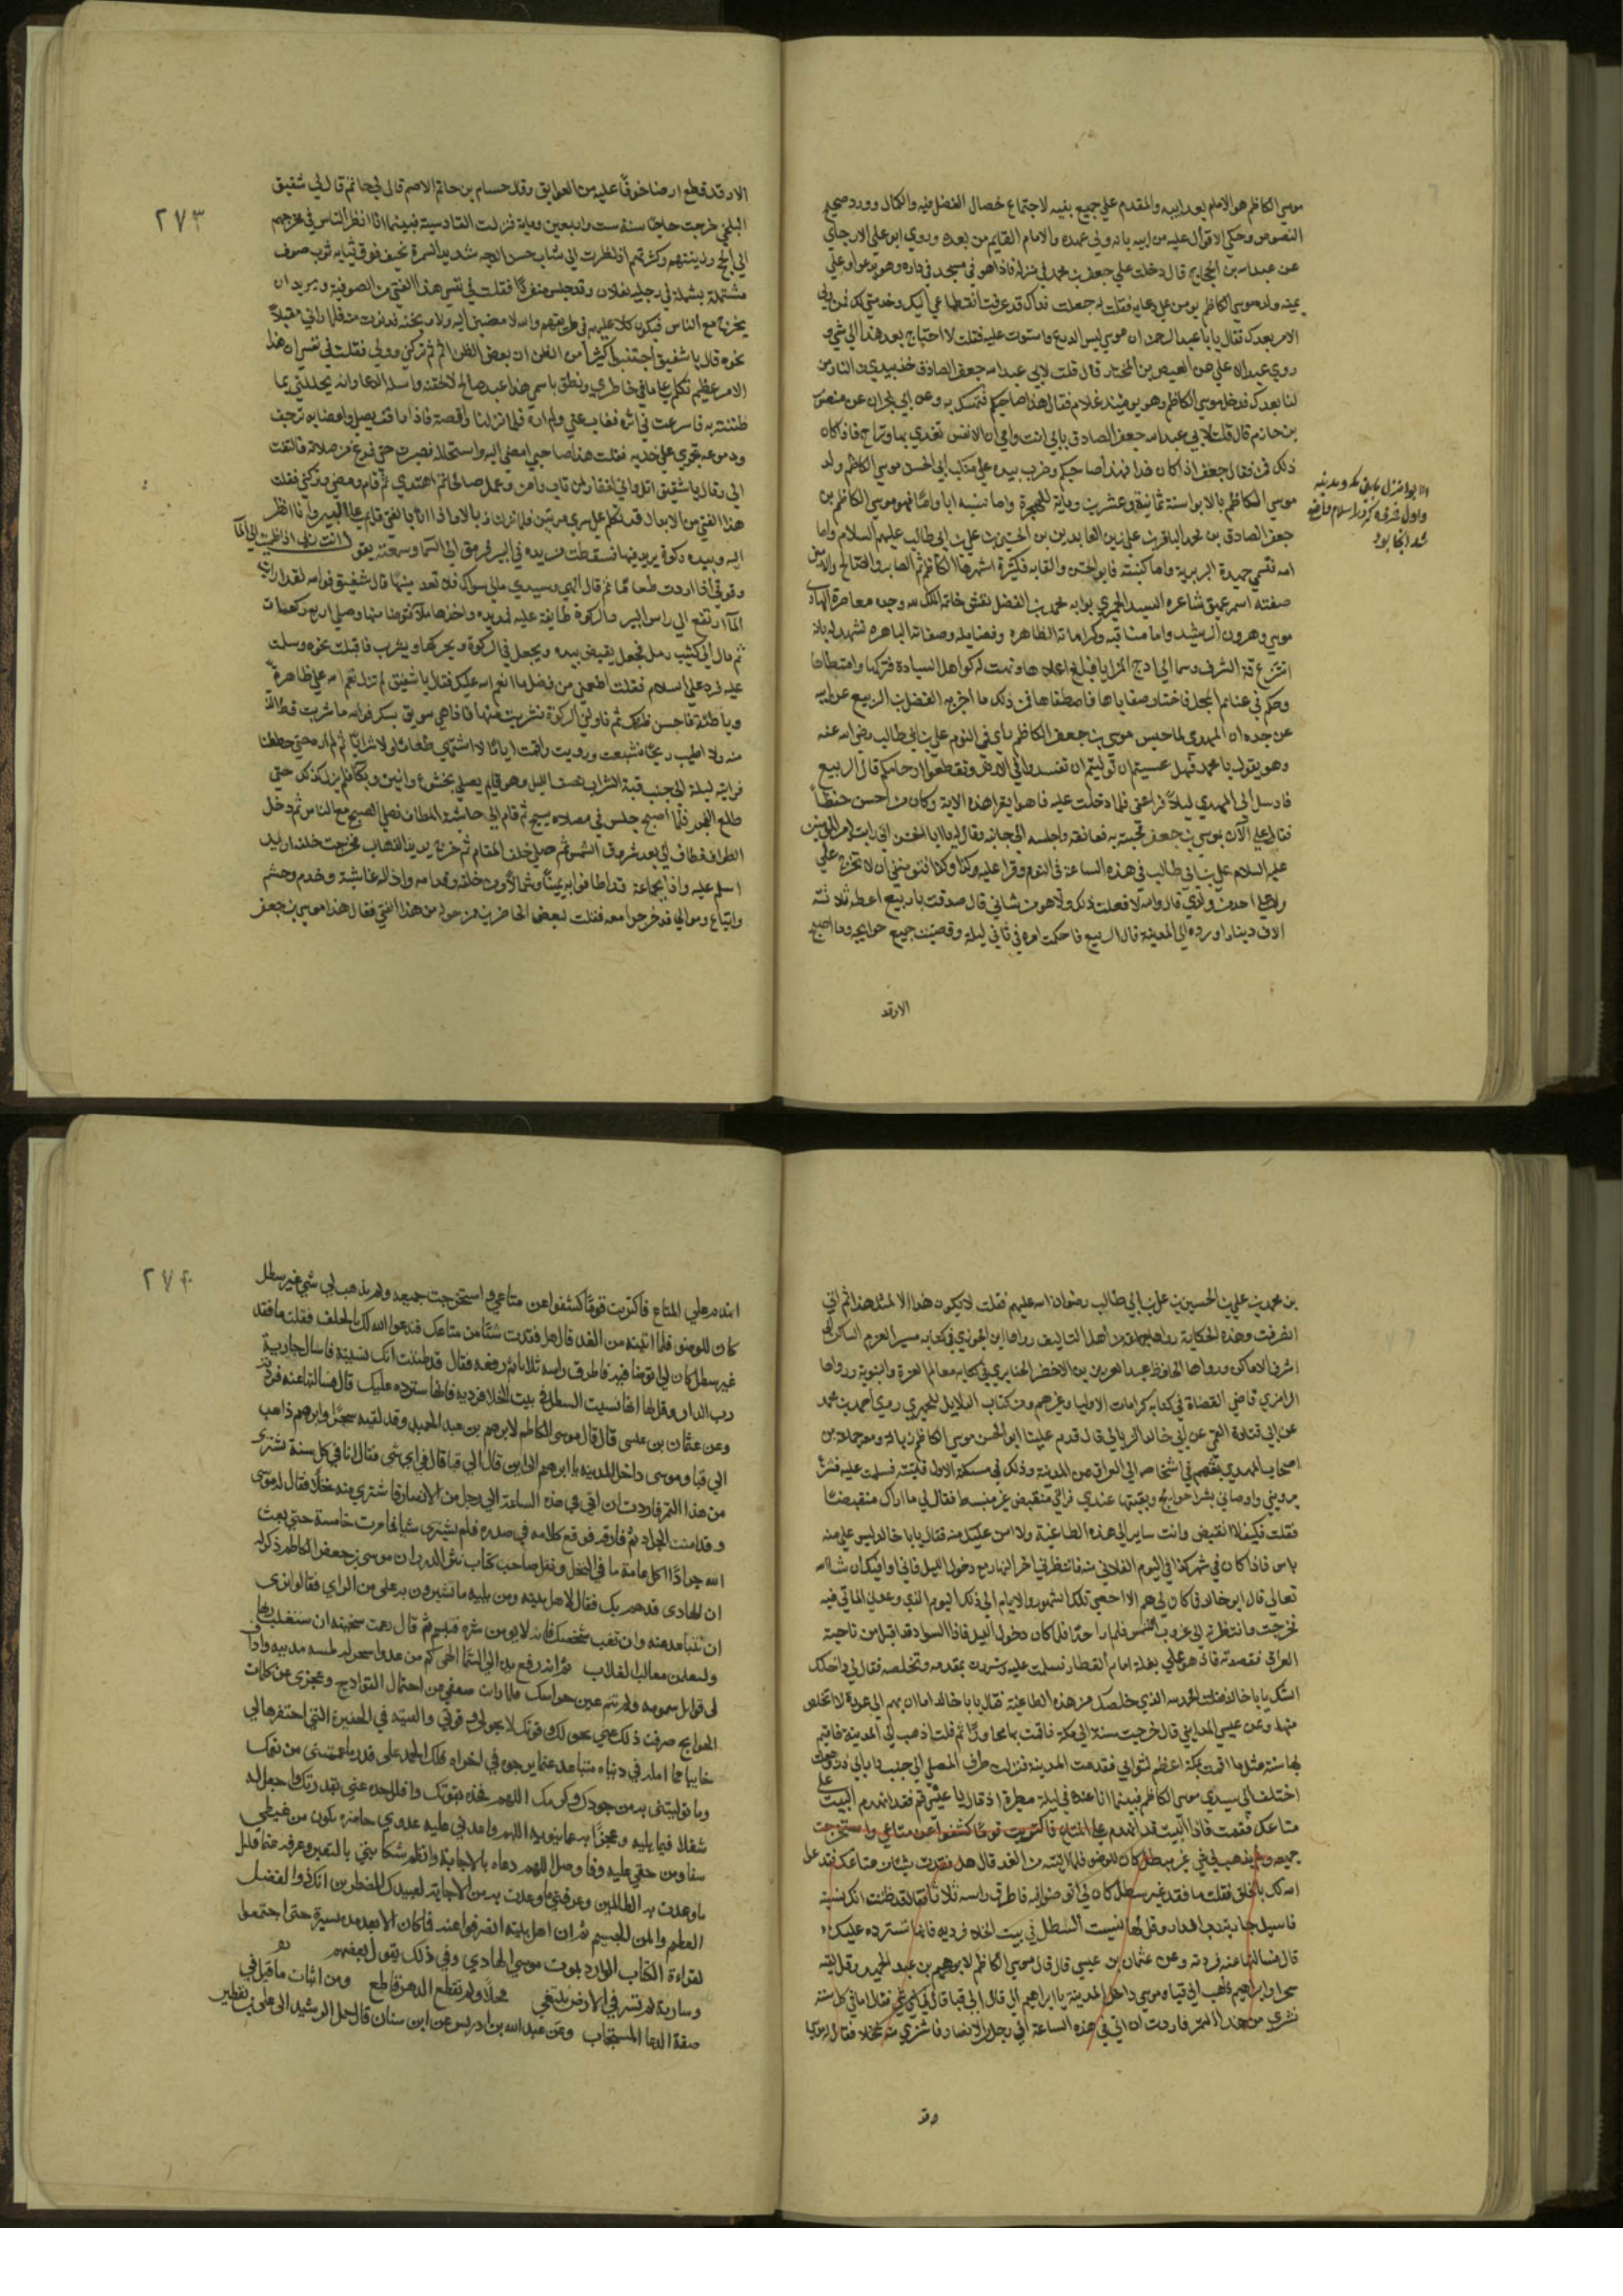 موسى الكاظم هو الامام بعد ابيه والمقدم على جميع بنيه لاجتماع خصال الفضل فيه والكمال وورود صحيح
النصوص وحكى الاقوال عليه من ابيه بانه ولي عهده والامام القايم من بعده وروي ابو علي الارجاي
عن عبد الله بن الحجاج قال دخلت على جعفر بن محمد في منزله فاذا هو في مسجد في داره وهو يدعو وعلى
يمينه ولده موسى الكاظم يومن على دعايه فقلت له جعلت فداك قد عرفت انقطاعي اليك وخدمتي لك فمن ولي
الامر بعدك فقال يا با عبد الرحمن ان موسى لبس الدرع واستوت عليه فقلت لا احتياج بعد هذا الى شي و
روي عبد الاعلى عن الفيض بن المختار قال قلت لابي عبد الله جعفر الصادق خذ بيدي من النار من
لنا بعدك فدخل موسى الكاظم وهو يوميذ غلام فقال هذا صاحبكم فتمسك به وعن ابن ابي نجران عن منصور
بن حازم قال قلت لابي عبد الله جعفر الصادق بابي انت وامي ان الانفس تغدي بها وتراح فاذا كان
ذلك فمن فقال جعفر اذا كان هذا فهذا صاحبكم وضرب بيده على منكب ابي الحسن موسى الكاظم ولد
موسى الكاظم بالابوا سنة ثمانية وعشرين وماية للهجرة واما نسبه ابا واما فهو موسى الكاظم بن
جعفر الصادق بن محمد الباقر بن علي زين العابدين بن الحسين بن علي بن ابي طالب عليهم السلام واما
امه فتسمى حميدة البربرية واما كنيته فابو الحسن والقابه فكثيرة اشهرها الكاظم ثم الصابر والصالح والامين
صفته اسمر عميق شاعره السيد الحميري بوابه محمد بن الفضل نقش خاتمه الملك لله وحده معاصره الهادي
موسى وهرون الرشيد واما مناقبه وكراماته الظاهره وفضايله وصفاته الباهره تشهد له بانه
افترع قبة الشرف وسما الى اوج المزايا فبلغ اعلاها وذللت له كواهل السيادة فركبها وامتطاها
وحكم في غنايم المجد فاختار صفاياها فاصطفاها فمن ذلك ما اخرجه الفضل بن الربيع عن ابيه
عن جده ان المهدي لما حبس موسى بن جعفر الكاظم راى في النوم علي بن ابي طالب رضي الله عنه
وهو يقول يا محمد فهل عسيتم ان توليتم ان تفسدوا في الارض وتقطعوا ارحامكم قال الربيع
فارسل الي المهدي ليلا فراعني فلما دخلت عليه فاذا هو يقرا هذه الاية وكان من احسن حفظا
فقال علي الان بموسى بن جعفر فجيته به فعانقه واجلسه الى جانبه وقال له يا ابا الحسن اني رايت امير المومنين
عليه السلام علي بن ابي طالب في هذه الساعة في النوم فقرا علي كذا وكذا فتومنني ان لا تخرج علي
ولا على احد من ولدي قال والله لا فعلت ذلك ولا هو من شاني قال صدقت يا ربيع اعطه ثلاثة
الاف دينار ورده الى المدينة قال الربيع فاحكمت امره في ثاني ليلة وقضيت جميع حوايجه وما اصبح
الا وقد
الابوا منزل مابين مكه ومدينه
الا وقد قطع ارضا خوفا عليه من العوايق ونقل حسام بن حاتم الاصم قال لي حاتم قال لي شقيق
البلخي خرجت حاجا سنة ست واربعين وماية فنزلت القادسية فبينما انا انظر الناس في مخرجهم
الى الحج وزينتهم وكثرتهم اذ نظرت الى شاب حسن الوجه شديد السمرة نحيف فوق ثيابه ثوب صوف
مشتملة بشملة في رجليه نعلان وقد جلس منفردا فقلت في نفسي هذا الفتى من الصوفية ويريد ان
يخرج مع الناس فيكون كلا عليهم في طريقهم والله لامضين اليه ولاوبخنه فدنوت منه فلما راني مقبلا
نحوه قال يا شقيق اجتنبوا كثيرا من الظن ان بعض الظن اثم ثم تركني وولى فقلت في نفسي ان هذا
الامر عظيم تكلم على ما في خاطري ونطق باسمي هذا عبد صالح لالحقنه واساله الدعا وانه يحللني بما
ظننته به فاسرعت في اثره فغاب عني ولم اره فلما نزلنا واقصة فاذا هو واقف يصلي واعضاوه ترجف
ودموعه تجري على خديه فقلت هذا صاحبي امضي اليه واستحله فصبرت حتى فرغ من صلاته فالتفت
الي وقال يا شقيق اتل واني لغفار لمن تاب وامن وعمل صالحا ثم اهتدى ثم قام ومضى وتركني فقلت
هذا الفتى من الابدال قد تكلم على سري مرتين فلما نزلنا زبالا اذا انا بالفتى قايم على البير وانا انظر
اليه وبيده ركوة يريد فيها ماء فسقطت من يده في البير فرمق الى السما وسمعته يقول انت ربي اذا ظميت الى الماء
وقوتي اذا اردت طعاما ثم قال الهي وسيدي مالي سواك فلا تعدمنيها قال شقيق فوالله لقد رايت
الماء ارتفع الى راس البير والركوة طافية عليه فمد يده واخذها ملآ فتوضا منها وصلى اربع ركعات
ثم مال الى كثيب رمل فجعل يقبض بيده ويجعل في الركوة ويحركها ويشرب فاقبلت نحوه وسلمت
عليه فرد علي السلام فقلت اطعمني من فضل ما انعم الله عليك فقال يا شقيق لم تزل نعم الله علي ظاهرة
وباطنة فاحسن ظنك ثم ناولني الركوة فشربت منها فاذا هي سويق بسكر فوالله ما شربت قط الذ
منه ولا اطيب ريحا فشبعت ورويت واقمت اياما لا اشتهي طعاما ولا شرابا ثم لم اره حتى حططنا
فرايته ليلة الى جنب قبة الشراب نصف الليل وهو قايم يصلي بخشوع وانين وبكا فلم يزل كذلك حتى
طلع الفجر فلما اصبح جلس في مصلاه يسبح ثم قام الى حاشية المطاف فصلى الصبح مع الناس ثم دخل
الطواف فطاف الى بعد شروق الشمس ثم صلى خلف المقام ثم خرج يريد الذهاب فخرجت خلفه اريد
اسلم عليه واذا بجماعة قد اطافوا به يمينا وشمالا ومن خلفه وقدامه واذا له غاشية وخدم وحشم
واتباع وموالي قد خرجوا معه فقلت لبعض الحاضرين من هذا الفتى فقال هذا موسى بن جعفر
٢٧٣
بن محمد بن علي بن الحسين بن علي بن ابي طالب رضوان الله عليهم فقلت لا يكون هذا الا لمثل هذا ثم اني
انصرفت وهذه الحكاية رواها جماعة من اهل التاليف رواها ابن الجوزي في كتابه مسير العزم الساكن الى
اشرف الاماكن ورواها الحافظ عبد العزيز بن الاخضر الجنابذي في كتابه معالم العترة والنبوية ورواها
الرامزي قاضي القضاة في كتابه كرامات الاوليا وغيرهم ومن كتاب الدلايل للحميري روي احمد بن محمد
عن ابي قتادة القمي عن ابي خالد الزبالي قال قدم علينا ابو الحسن موسى الكاظم زبالة ومعه جماعة من
اصحاب المهدي بعثهم في اشخاصه الى العراق من المدينة وذلك في مسكنه الاولى فاتيته فسلمت عليه فسر
برويتي واوصاني بشرا حوايج وبقيتها عندي فراني منقبض غير منبسط فقال لي ما اراك منقبضا
فقلت فكيف لا انقبض وانت ساير الى هذه الطاغية ولا امن عليك منه فقال يا با خالد ليس علي منه
باس فاذا كان في شهر كذا في اليوم الفلاني منه فانتظرني اخر النهار مع دخول الليل فاني اوافيك ان شا الله
تعالى قال ابو خالد فما كان لي هم الا احصي تلك الشهور والايام الى ذلك اليوم الذي وعدني الماتي فيه
فخرجت وانتظرته الى غروب الشمس فلم ار احدا فلما كان دخول الليل فاذا السواد قد اقبل من ناحية
العراق فقصدته فاذا هو على بغلة امام القطار فسلمت عليه وسررت بمقدمه وتخلصه فقال لي داخلك
الشك يا با خالد فقلت الحمد لله الذي خلصك من هذه الطاغية فقال يا با خالد اما ان لهم الي عودة لا اتخلص
منها وعن عيسى المدايني قال خرجت سنة الى مكة فاقمت بها مجاورا ثم قلت اذهب الى المدينة فاقيم
بها سنة مثل ما اقمت بمكة اعظم لثوابي فقدمت المدينة فنزلت طرف المصلى الى جنب دار ابي ذر وجعلت
اختلف الى سيدي موسى الكاظم فبينما انا عنده في ليلة مطرة اذ قال يا عيسى قم فقد انهدم البيت على
متاعك فقمت فاذا البيت قد انهدم على المتاع فاكتريت قوما كشفوا عن متاعي واستخرجت
جميعه ولم يذهب لي شي غير سطل كان للوضو فلما اتيته من الغد قال هل فقدت شيئا من متاعك فندعو
الله لك بالخلف فقلت ما فقد غير سطل كان لي اتوضا فيه فاطرق راسه ثلاثا فقال قد ظننت انك نسيته
فاسيل جارية رب الدار وقل لها نسيت السطل في بيت الخلا فرديه فانها سترده عليك
قال فسالتها عنه فردته وعن عثمان بن عيسى قال قال موسى الكاظم لابرهيم بن عبد الحميد وقد لقيه
سحرا وابراهيم ذاهب الى قبا وموسى داخل المدينة يا ابراهيم الى قال الى قبا قال في اي شي فقال انا في كل سنة
نشتري من هذا التمر فاردت ان اتي في هذه الساعة الى رجل من الانصار فاشتري منه نخلا فقال له موسى
وقد
انهدم على المتاع فاكتريت قوما كشفوا عن متاعي واستخرجت جميعه ولم يذهب لي شي غير سطل
كان للوضو فلما اتيته من الغد قال هل فقدت شيئا من متاعك فندعوا الله لك بالخلف فقلت ما فقد
غير سطل كان لي اتوضا فيه فاطرق راسه ثلاثا ثم رفعه فقال قد ظننت انك نسيته فاسال جارية
رب الدار وقل لها انها نسيت السطل في بيت الخلا فرديه فانها سترده عليك قال فسالتها عنه فردته
وعن عثمان بن عيسى قال قال موسى الكاظم لابرهيم بن عبد الحميد وقد لقيه سحرا وابرهيم ذاهب
الى قبا وموسى داخل المدينة يا ابرهيم الى اين قال الى قبا قال في اي شي فقال انا في كل سنة نشتري
من هذا التمر فاردت ان اتي في هذه الساعة الى رجل من الانصار فاشتري منه نخلا فقال له موسى
وقد امنت الجراد ثم فارقه فوقع كلامه في صدره فلم يشتري شيا فما مرت خامسة حتى بعث
الله جرادا اكل عامة ما في النخل ونقل صاحب كتاب نثر الدر ان موسى بن جعفر الكاظم ذكر له
ان الهادي قد هم بك فقال لاهل بيته ومن يليه ما تشيرون به علي من الراي فقالوا نرى
ان تتباعد عنه وان تغيب شخصك فانه لا يومن شره فتبسم ثم قال زعمت سخينة ان ستغلب ربها
وليغلبن مغالب الغلاب ثم انه رفع يده الى السما الهي كم من عدو
الحوايج صرفت ذلك عني بحولك وقوتك لا بحولي وقوتي والقيته في الحفيرة التي احتفرها لي
خايبا مما امله في دنياه متباعدا عما يرجوه في اخراه فلك الحمد على قدر ما عممتني من نعمك
وما توليتني به من جودك وكرمك اللهم فخذه بقوتك وافلل حده عني بقدرتك واجعل له
شغلا فيما يليه وعجزا به عما ينويه اللهم واعدني عليه عدوى حاضرة تكون من غيظي
شفا ومن حنقي عليه وفا وصل اللهم دعاه بالاجابة وانظم شكايتي بالتغيير وعرفه عما قليل
ما وعدت به الظالمين وعرفني ما وعدت به من الاجابة لعبيدك المضطرين انك ذو الفضل
العظيم والمن الجسيم ثم ان اهل بيته انصرفوا عنه فما كان الا بعد مدة يسيرة حتى اجتمعوا
لقراءة الكتاب الوارد بموت موسى الهادي وفي ذلك يقول بعضهم
وسارية لم تسر في الارض تبتغي محلا ولم تقطع الدهر قاطع ومن ابيات ما قيل في
صفة الدعا المستجاب وعن عبد الله بن ادريس عن ابن سنان قال حمل الرشيد الى علي بن يقطين
٢٧٤